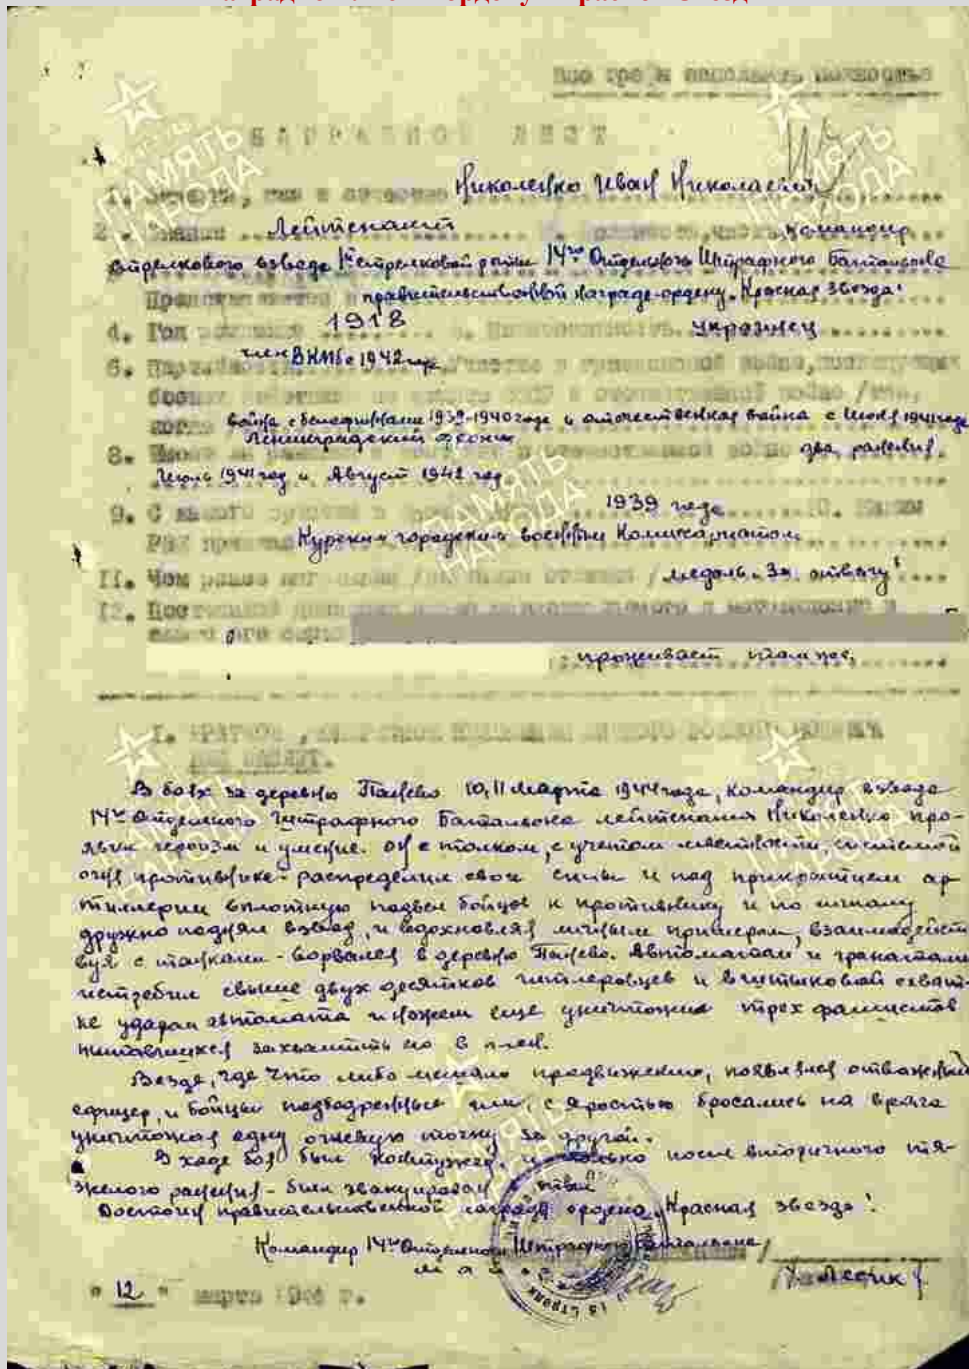 Все гра и заполнять полностью
НАГРАДНОЙ ЛИСТ
1. Фамилия, имя и отчество Николенко Иван Николаевич
2. Звание Лейтенант Должность, часть командир
стрелкового взвода 1й стрелковой роты 14го Отдельного Штрафного Батальона
Представляется к правительственной награде-ордену "Красная звезда"
4. Год рождения 1918 5. Национальность украинец
6. Партийность член ВКПб с 1942 года Участие в гражданской войне, последующих
боевых действиях по защите СССР и отечественной войне /где,
когда война с белофиннами 1939-1940 годе и отечественная война с Июня 1941 года
Ленинградский фронт
8. Имеет ли ранения и контузии в отечественной войне два ранения.
Июль 1941 год и Август 1942 год
9. С какого времени в 1939 года 10. Каким
РВК призван Курским городским военным Комиссариатом
11. Чем ранее награжден /за какие отличия/ медаль "За отвагу"
12. Постоянный домашний адрес
его семьи
проживает там же.
I. КРАТКОЕ, КОНКРЕТНОЕ ИЗЛОЖЕНИЕ ЛИЧНОГО БОЕВОГО ПОДВИГА
ИЛИ ЗАСЛУГ.
В боях за деревню 10, 11 марта 1944 года, командир взвода
14го Отдельного Штрафного Батальона лейтенант Николенко про-
явил героизм и умение. Он с толком, с учетом местности и системой
огня противника - распределил свои силы и под прикрытием ар-
тиллерии вплотную подвел бойцов к противнику и по сигналу
дружно поднял взвод, и вдохновляя личным примером, взаимодейст
вуя с танками - ворвался в деревню. Автоматом и гранатами
истребил свыше двух десятков гитлеровцев и в штыковой схват-
ке ударом автомата и ножом еще уничтожил трех фашистов
пытавшихся захватить его в плен.
Везде, где что либо мешало продвижению, появлялся отважный
офицер, и бойцы подбодренные им, с яростью бросались на врага
уничтожая одну огневую точку за другой.
В ходе боя был контужен, и только после вторичного тя-
желого ранения - был эвакуирован в тыл
Достоин правительственной награды ордена "Красная звезда".
Командир 14го Отдельного Штрафного Батальона
майор
/Лесик/
"12" марта 1944 г.
ПАМЯТЬ НАРОДА
ПАМЯТЬ НАРОДА
ПАМЯТЬ НАРОДА